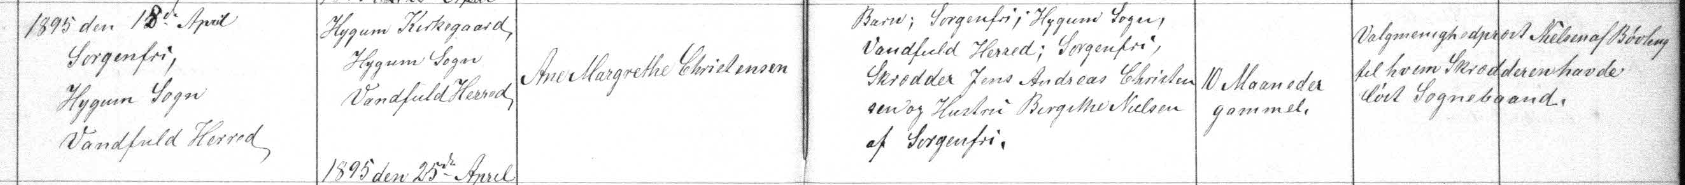 1895 den 18de April
Sorgenfri,
Hygum Sogn
Vandfuld Herred,
Hygum Kirkegaard,
Hygum Sogn
Vandfuld Herred,
1895 den 25de April
Ane Margrethe Christensen
Barn; Sorgenfri; Hygum Sogn,
Vandfuld Herred; Sorgenfri,
Skrædder Jens Andreas Christen
sen og Hustru Birgithe Nielsen
af Sorgenfri.
10 Maaneder
gammel.
Valgmenighedpræst Nielsen af Bövling
til hvem Skrædderen havde
løst Sognebaand.